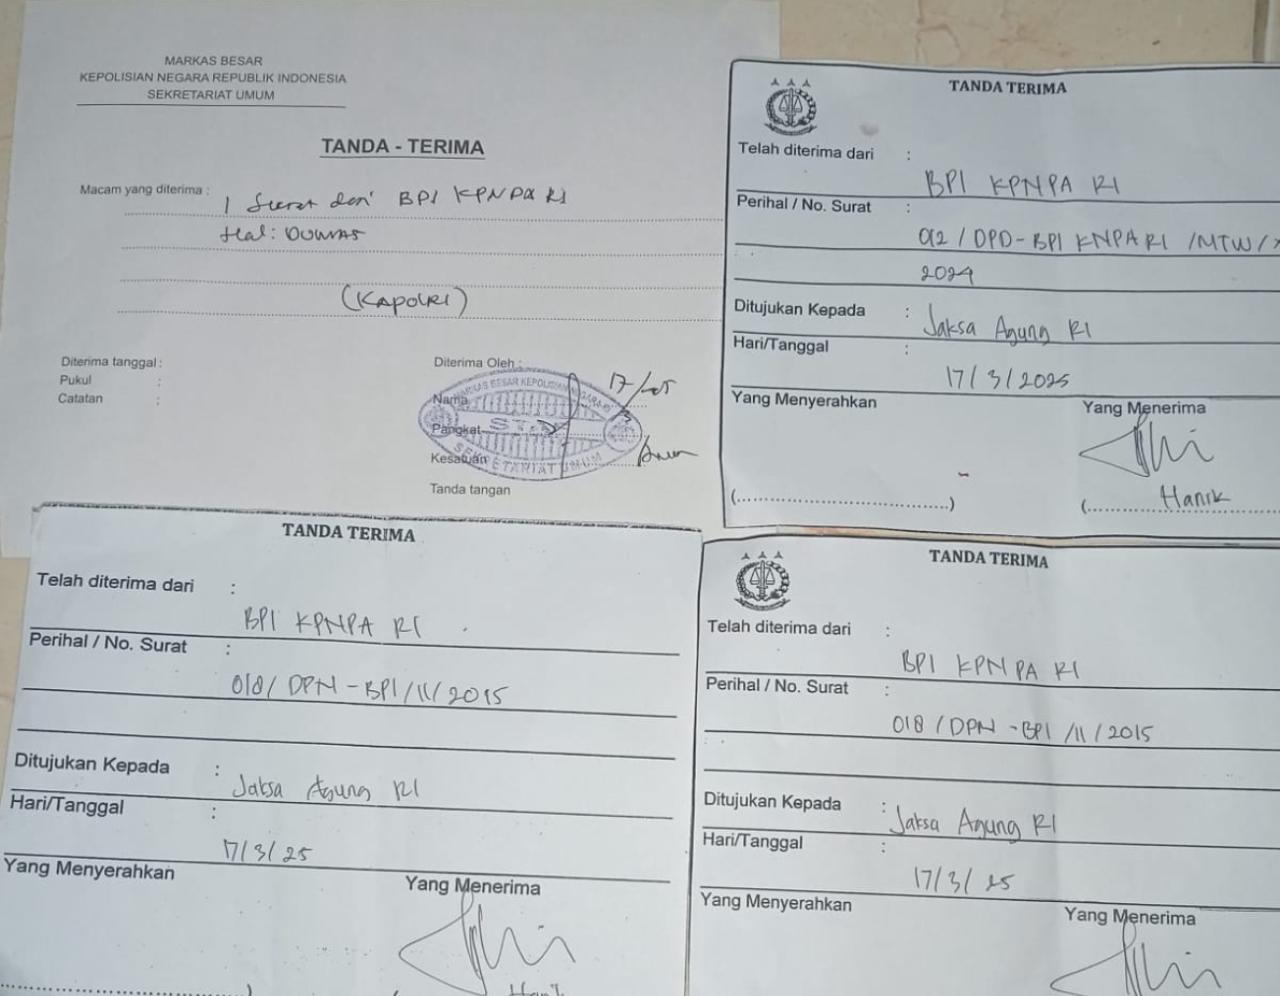 MARKAS BESAR
KEPOLISIAN NEGARA REPUBLIK INDONESIA
SEKRETARIAT UMUM
TANDA - TERIMA
Macam yang diterima :
1 Surat dari BPI KPNPA RI
Hal: DUMAS
(KAPOLRI)
Diterima tanggal :
Pukul :
Catatan :
Diterima Oleh :
17/
Nama
Pangkat
Kesatuan
Tanda tangan
MARKAS BESAR KEPOLISIAN NEGARA RI
SEKRETARIAT UMUM
TANDA TERIMA
Telah diterima dari :
BPI KPNPA RI
Perihal / No. Surat :
012 / DPD-BPI KNPA RI /MTW/
2024
Ditujukan Kepada :
Jaksa Agung RI
Hari/Tanggal :
17/3/2025
Yang Menyerahkan
Yang Menerima
(..............................)
(.............. Hanik
TANDA TERIMA
Telah diterima dari :
BPI KPNPA RI
Perihal / No. Surat :
018/ DPN-BPI/11/2015
Ditujukan Kepada :
Jaksa Agung RI
Hari/Tanggal :
17/3/25
Yang Menyerahkan
Yang Menerima
TANDA TERIMA
Telah diterima dari :
BPI KPNPA RI
Perihal / No. Surat :
018 / DPN -BPI /11/2015
Ditujukan Kepada :
Jaksa Agung RI
Hari/Tanggal :
17/3/25
Yang Menyerahkan
Yang Menerima